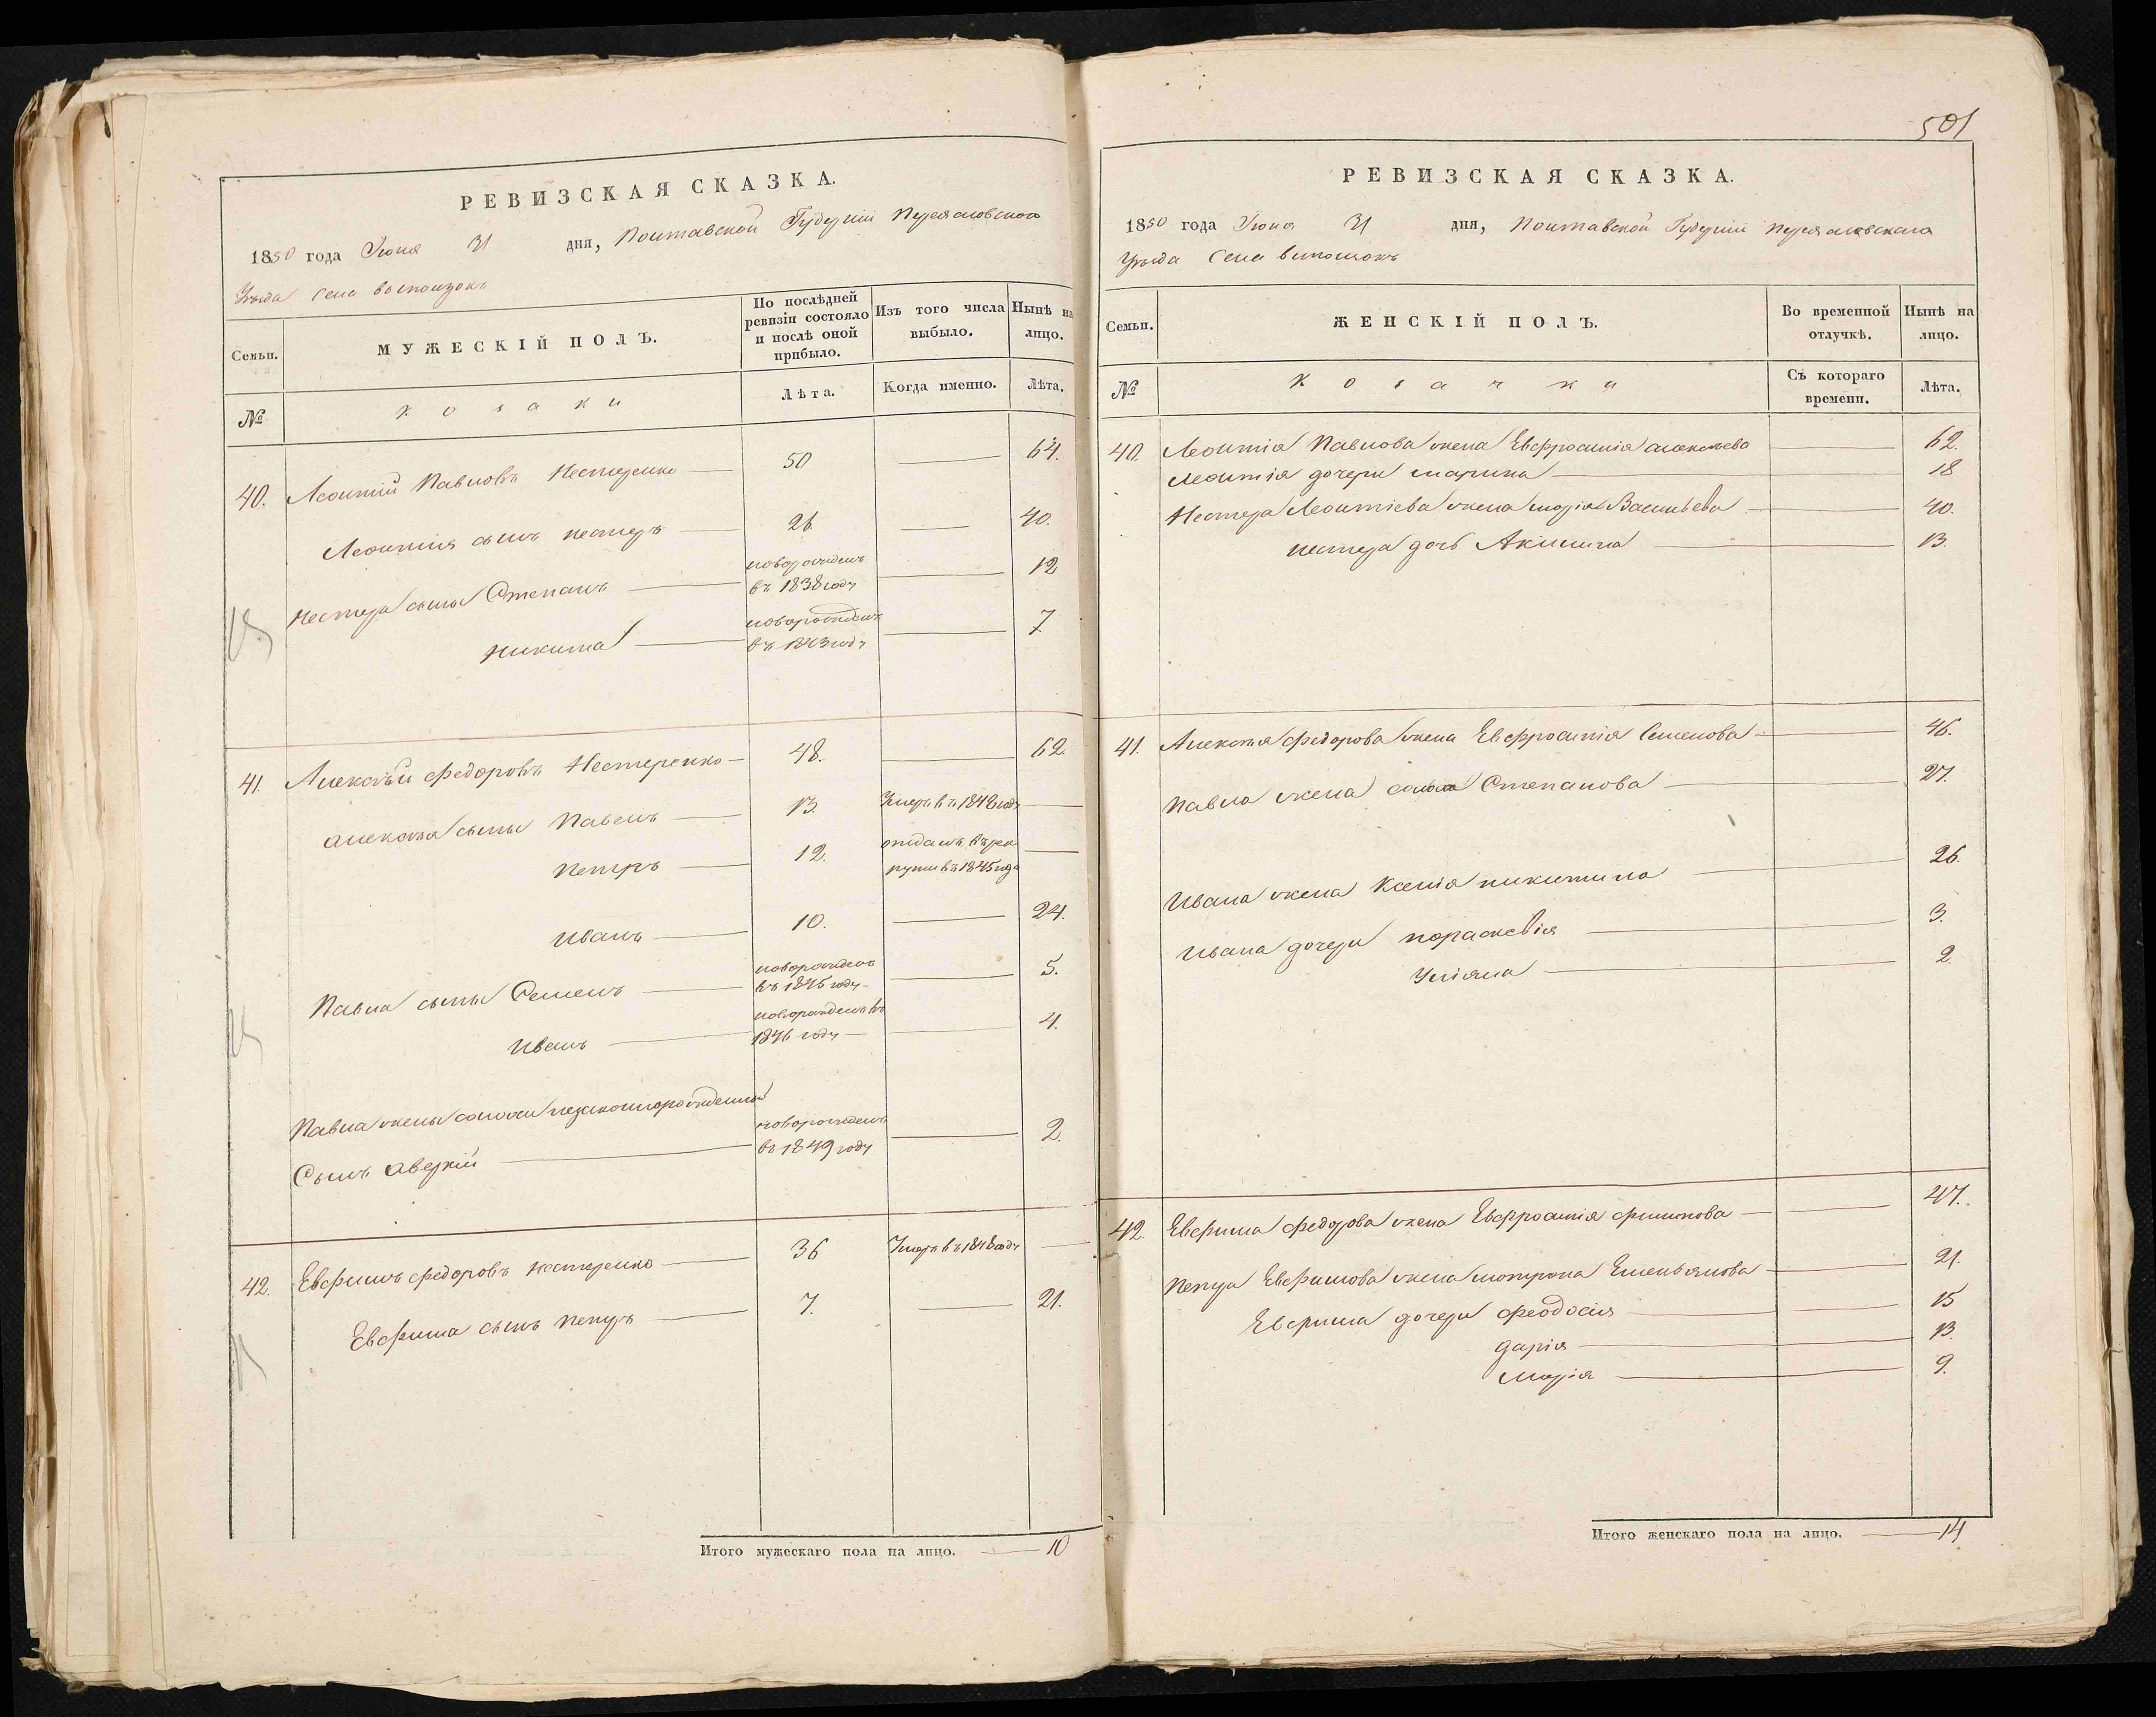 РЕВИЗСКАЯ СКАЗКА.
1850 года Июня 31 дня, Полтавской Губерніи Переяловского
Уѣзда Села
Семьи. МУЖЕСКІЙ ПОЛЪ. По послѣдней ревизіи состояло и послѣ оной прибыло. Изъ того числа выбыло. Нынѣ на лицо.
№ козаки Лѣта. Когда именно. Лѣта.
40. Леонтій Павловъ Нестеренко 50 64.
Леонтія сынъ Нестеръ 26 40.
Нестера сыны Степанъ новорожденъ въ 1838 году 12
Никита новорожденъ въ 1843 году 7
41. Алексѣй Федоровъ Нестеренко 48. 62.
Алексѣя сыны Павелъ 13. Умеръ въ 1848 году
Петръ 12. отданъ въ рекруты въ 1845 года
Иванъ 10. 24.
Павла сыны Семенъ новорожденъ въ 1845 году 5.
Иванъ новорожденъ въ 1846 году 4.
Павла жены незаконнорожденный
Сынъ Аверкій новорожденъ въ 1849 году 2.
42. Евфимъ Федоровъ Нестеренко 36 Умеръ въ 1848 году
Евфима сынъ Петръ 7. 21.
Итого мужескаго пола на лицо. 10
501
РЕВИЗСКАЯ СКАЗКА.
1850 года Июня 31 дня, Полтавской Губерніи Переяловскаго
Уѣзда Села
Семьи. ЖЕНСКІЙ ПОЛЪ. Во временной отлучкѣ. Нынѣ на лицо.
№ козачки Съ котораго времени. Лѣта.
40. Леонтія Павлова жена Евфросинія Алексѣева 62.
Леонтія дочери Марина 18
Нестера Леонтіева жена Марія Васильева 40.
Нестера дочь Акилина 13.
41. Алексѣя Федорова жена Евфросинія Семенова 46.
Павла жена Степанова 27.
Ивана жена Ксенія Никитина 26.
Ивана дочери Параскевія 3.
Уліяна 2.
42. Евфима Федорова жена Евфросинія Филипова 47.
Петра Евфимова жена Мотрона Емельянова 21.
Евфима дочери Феодосія 15
Дарія 13.
Марія 9.
Итого женскаго пола на лицо. 14